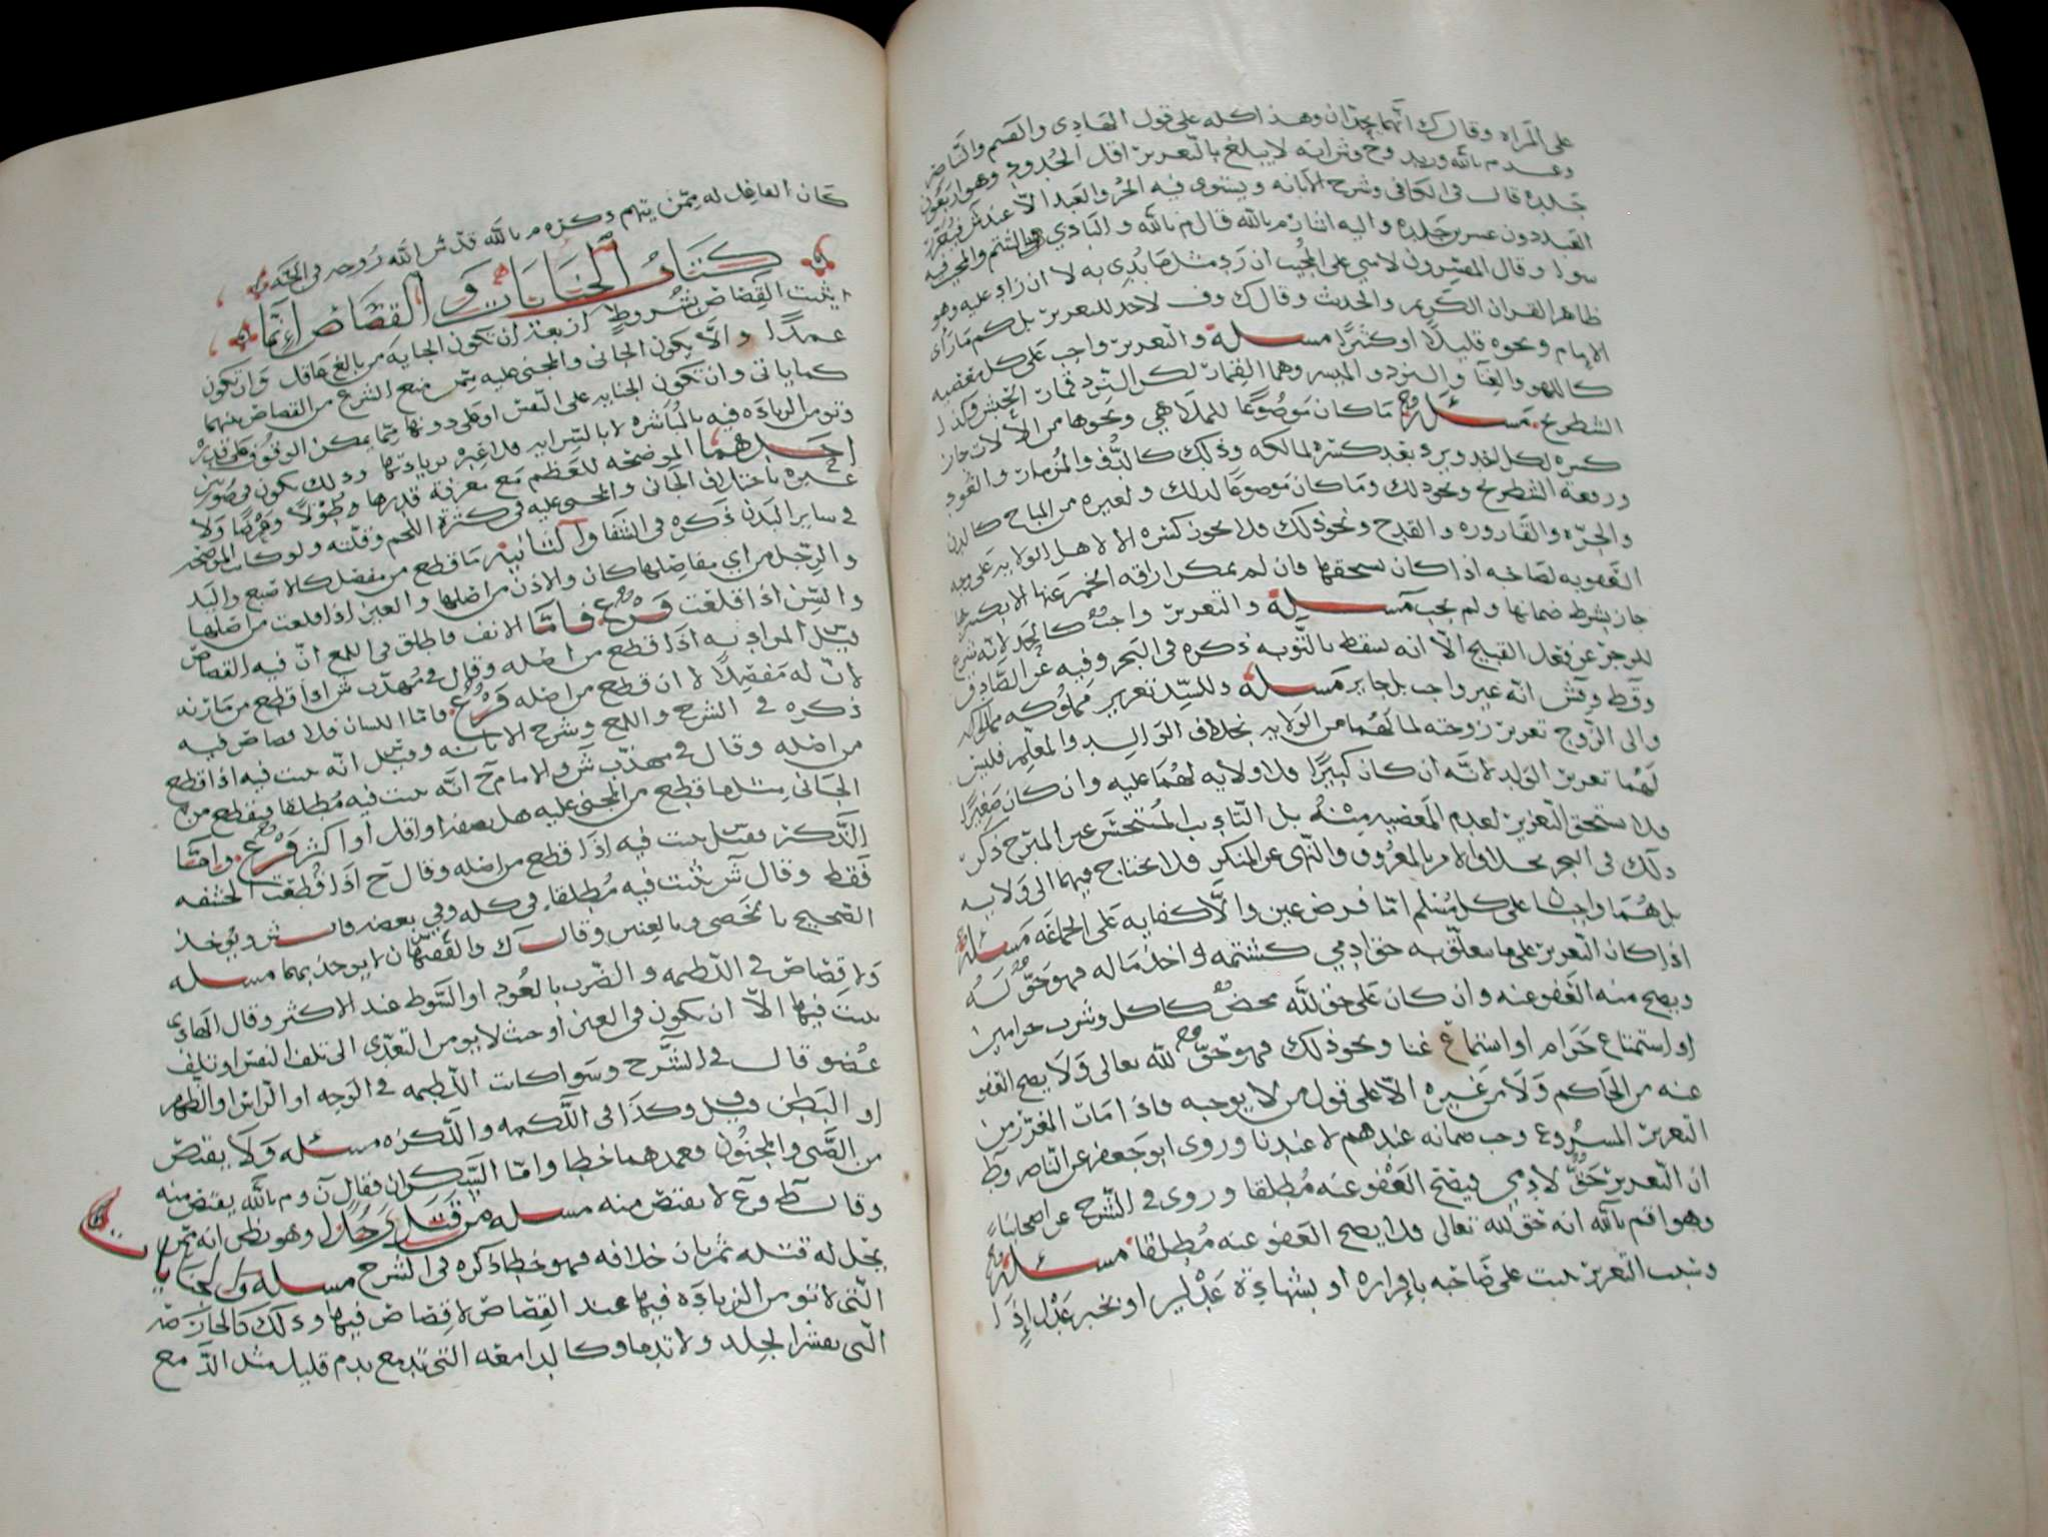 على المراه وقال ك انهما يحدان وهذا كله على قول الهادي والقسم والناصر
وعند م بالله وزيد وح وش انه لا يبلغ بالتعزير اقل الحدود وهو اربعون
جلده قال في الكافي وشرح الابانه ويستوي فيه الحر والعبد الا عند ك فيعزر
العبد دون عشرين جلده واليه اشار م بالله قال م بالله و البادي بالشتم والمجيب فيه
سوا وقال المفسرون لا شي على المجيب ان رد مثل ما بدي به لا ان زاد عليه وهو
ظاهر القران الكريم والحديث وقال ك وف لا حد للتعزير بل كم ما راى
الامام ونحوه قليلا او كثيرا مسلة والتعزير واجب على كل معصيه
كاللهو والغنا والنرد و الميسر وهما القمار لكن النرد قمار الحبش وكذا
الشطرنج مسئلة ما كان موضوعا للملاهي ونحوها من الالات جاز
كسره لكل احد ويرد بعد كسره لمالكه وذلك كالدف والمزمار والعود
ورقعة الشطرنج ونحو ذلك وما كان موضوعا لذلك ولغيره من المباح كالدن
والجره والقاروره والقدح ونحو ذلك فلا يجوز كسره الا لاهل الولايه على وجه
العقوبه لصاحبه اذا كان يستحقها فان لم يمكن اراقه الخمر عنها الا بكسرها
جاز بشرط ضمانها ولم يجب مسلة والتعزير واجب كالحد لانه شرع
للزجر عن فعل القبيح الا انه يسقط بالتوبه ذكره في البحر وفيه عن الصادق
وقط وقش انه غير واجب بل جايز مسلة وللسيد تعزير مملوكه
والى الزوج تعزير زوجته لما لهما من الولايه بخلاف الوالد والمعلم فليس
لهما تعزير الولد لانه ان كان كبيرا فلا ولايه لهما عليه وان كان صغيرا
فلا يستحق التعزير لعدم المعصيه منه بل التاديب المستحسن غير المبرح ذكر
ذلك في البحر بخلاف الامر بالمعروف والنهى عن المنكر فلا يحتاج فيهما الى ولايه
بل هما واجبان على كل مسلم اما فرض عين والا كفايه على الجماعه مسلة
اذا كان التعزير على ما يتعلق به حق ادمي كشتمه او اخذ ماله فهو حق له
ويصح منه العفو عنه وان كان على حق لله محض كاكل وشرب حرامين
او استمتاع حرام او استماع غنا ونحو ذلك فهو حق لله تعالى ولا يصح العفو
عنه من الحاكم ولا من غيره الا على قول من لا يوجبه فاذا مات المعزر من
التعزير المشروع وجب ضمانه عندهم لا عندنا وروى ابو جعفر عن الناصر وط
ان التعزير حق لادمي فيصح العفو عنه مطلقا وروى في الشرح عن اصحابنا
وهو اقم بالله انه حق لله تعالى فلا يصح العفو عنه مطلقا مسئلة
وسبب التعزير يثبت على صاحبه باقراره او بشهادة عدلين او بخبر عدل اذا
كان الفاعل له ممن يتهم وذكره م بالله قدس الله روحه في الجنه
كتاب الجنايات و القصاص انما
يثبت القصاص بشروط ان يعقد ان تكون الجنايه من بالغ عاقل وان تكون
عمدا والا يكون الجاني والمجني عليه ممن منع الشرع من القصاص بينهما
كما ياتي وان تكون الجنايه على النفس او على دونها مما يمكن الوقوف على قدره
وتومن الزياده فيه بالمباشره لا بالسرايه فلا عبره بزيادتها وذلك يكون في صورتين
احدهما الموضحه للعظم مع معرفة قدرها طولا وعرضا ولا
عبره باختلاف الجاني والمجني عليه في كثرة اللحم وقلته ولو كانت الموضحه
في ساير البدن ذكره في الشفا والثانيه ما قطع من مفصل كالاصبع واليد
والرجل من اي مفاصلها كان والاذن من اصلها والعين اذا قلعت من اصلها
والسن اذا قلعت فرع فاما الانف فاطلق في اللمع ان فيه القصاص
قيل المراد به اذا قطع من اصله وقال في مهذب ش اذا قطع من مارنه
لان له مفصلا لا ان قطع من اصله فرع فاما اللسان فلا قصاص فيه
ذكره في الشرح واللمع وشرح الابانه وقيل انه يثبت فيه اذا قطع
من اصله وقال في مهذب ش والامام ح انه يثبت فيه مطلقا فيقطع من
الجاني مثل ما قطع من المجني عليه هل نصف او اقل او اكثر فرع واما
الذكر فقيل يثبت فيه اذا قطع من اصله وقال ح اذا قطعت الحشفه
فقط وقال ش يثبت فيه مطلقا في كله وفي بعضه قال ش ويوخذ
الصحيح بالخصي وبالعنين وقال ك والفقهان لا يوخذ بهما مسله
ولا قصاص في اللطمه و الضرب بالعود او السوط عند الاكثر وقال الهادي
يثبت فيها الا ان يكون في العين او حيث لا يومن التعدي الى تلف النفس او تلف
عضو قال في الشرح وسوا كانت اللطمه في الوجه او الراس او الظهر
او البطن وقيل وكذا في اللكمه واللكزه مسئله ولا يقتص
من الصبي والمجنون فعمدهما خطا واما السكران فقال ن و م بالله يقتص منه
وقال ط وع لا يقتص منه مسله من قتل رجلا وهو يظن انه ممن
يحل له قتله ثم بان خلافه فهو خطا ذكره في الشرح مسله والجنايا
التي لا تومن الزياده فيها عند القصاص لا قصاص فيها وذلك كالحارصه
التي تقشر الجلد ولا تدما وكالدامعه التي تدمع بدم قليل مثل الدمع